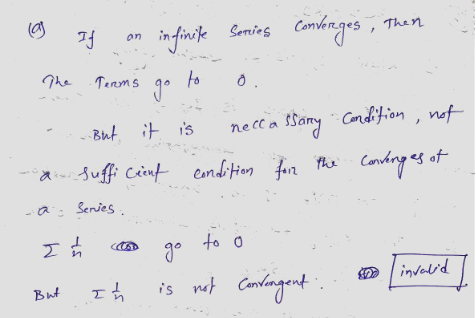 (a) If an infinite Series Converges, Then
The Terms go to 0.
But it is neccassary Condition, not
a sufficient condition for the Converges of
a Series.
Σ 1/n go to 0
But Σ 1/n is not Convergent. invalid